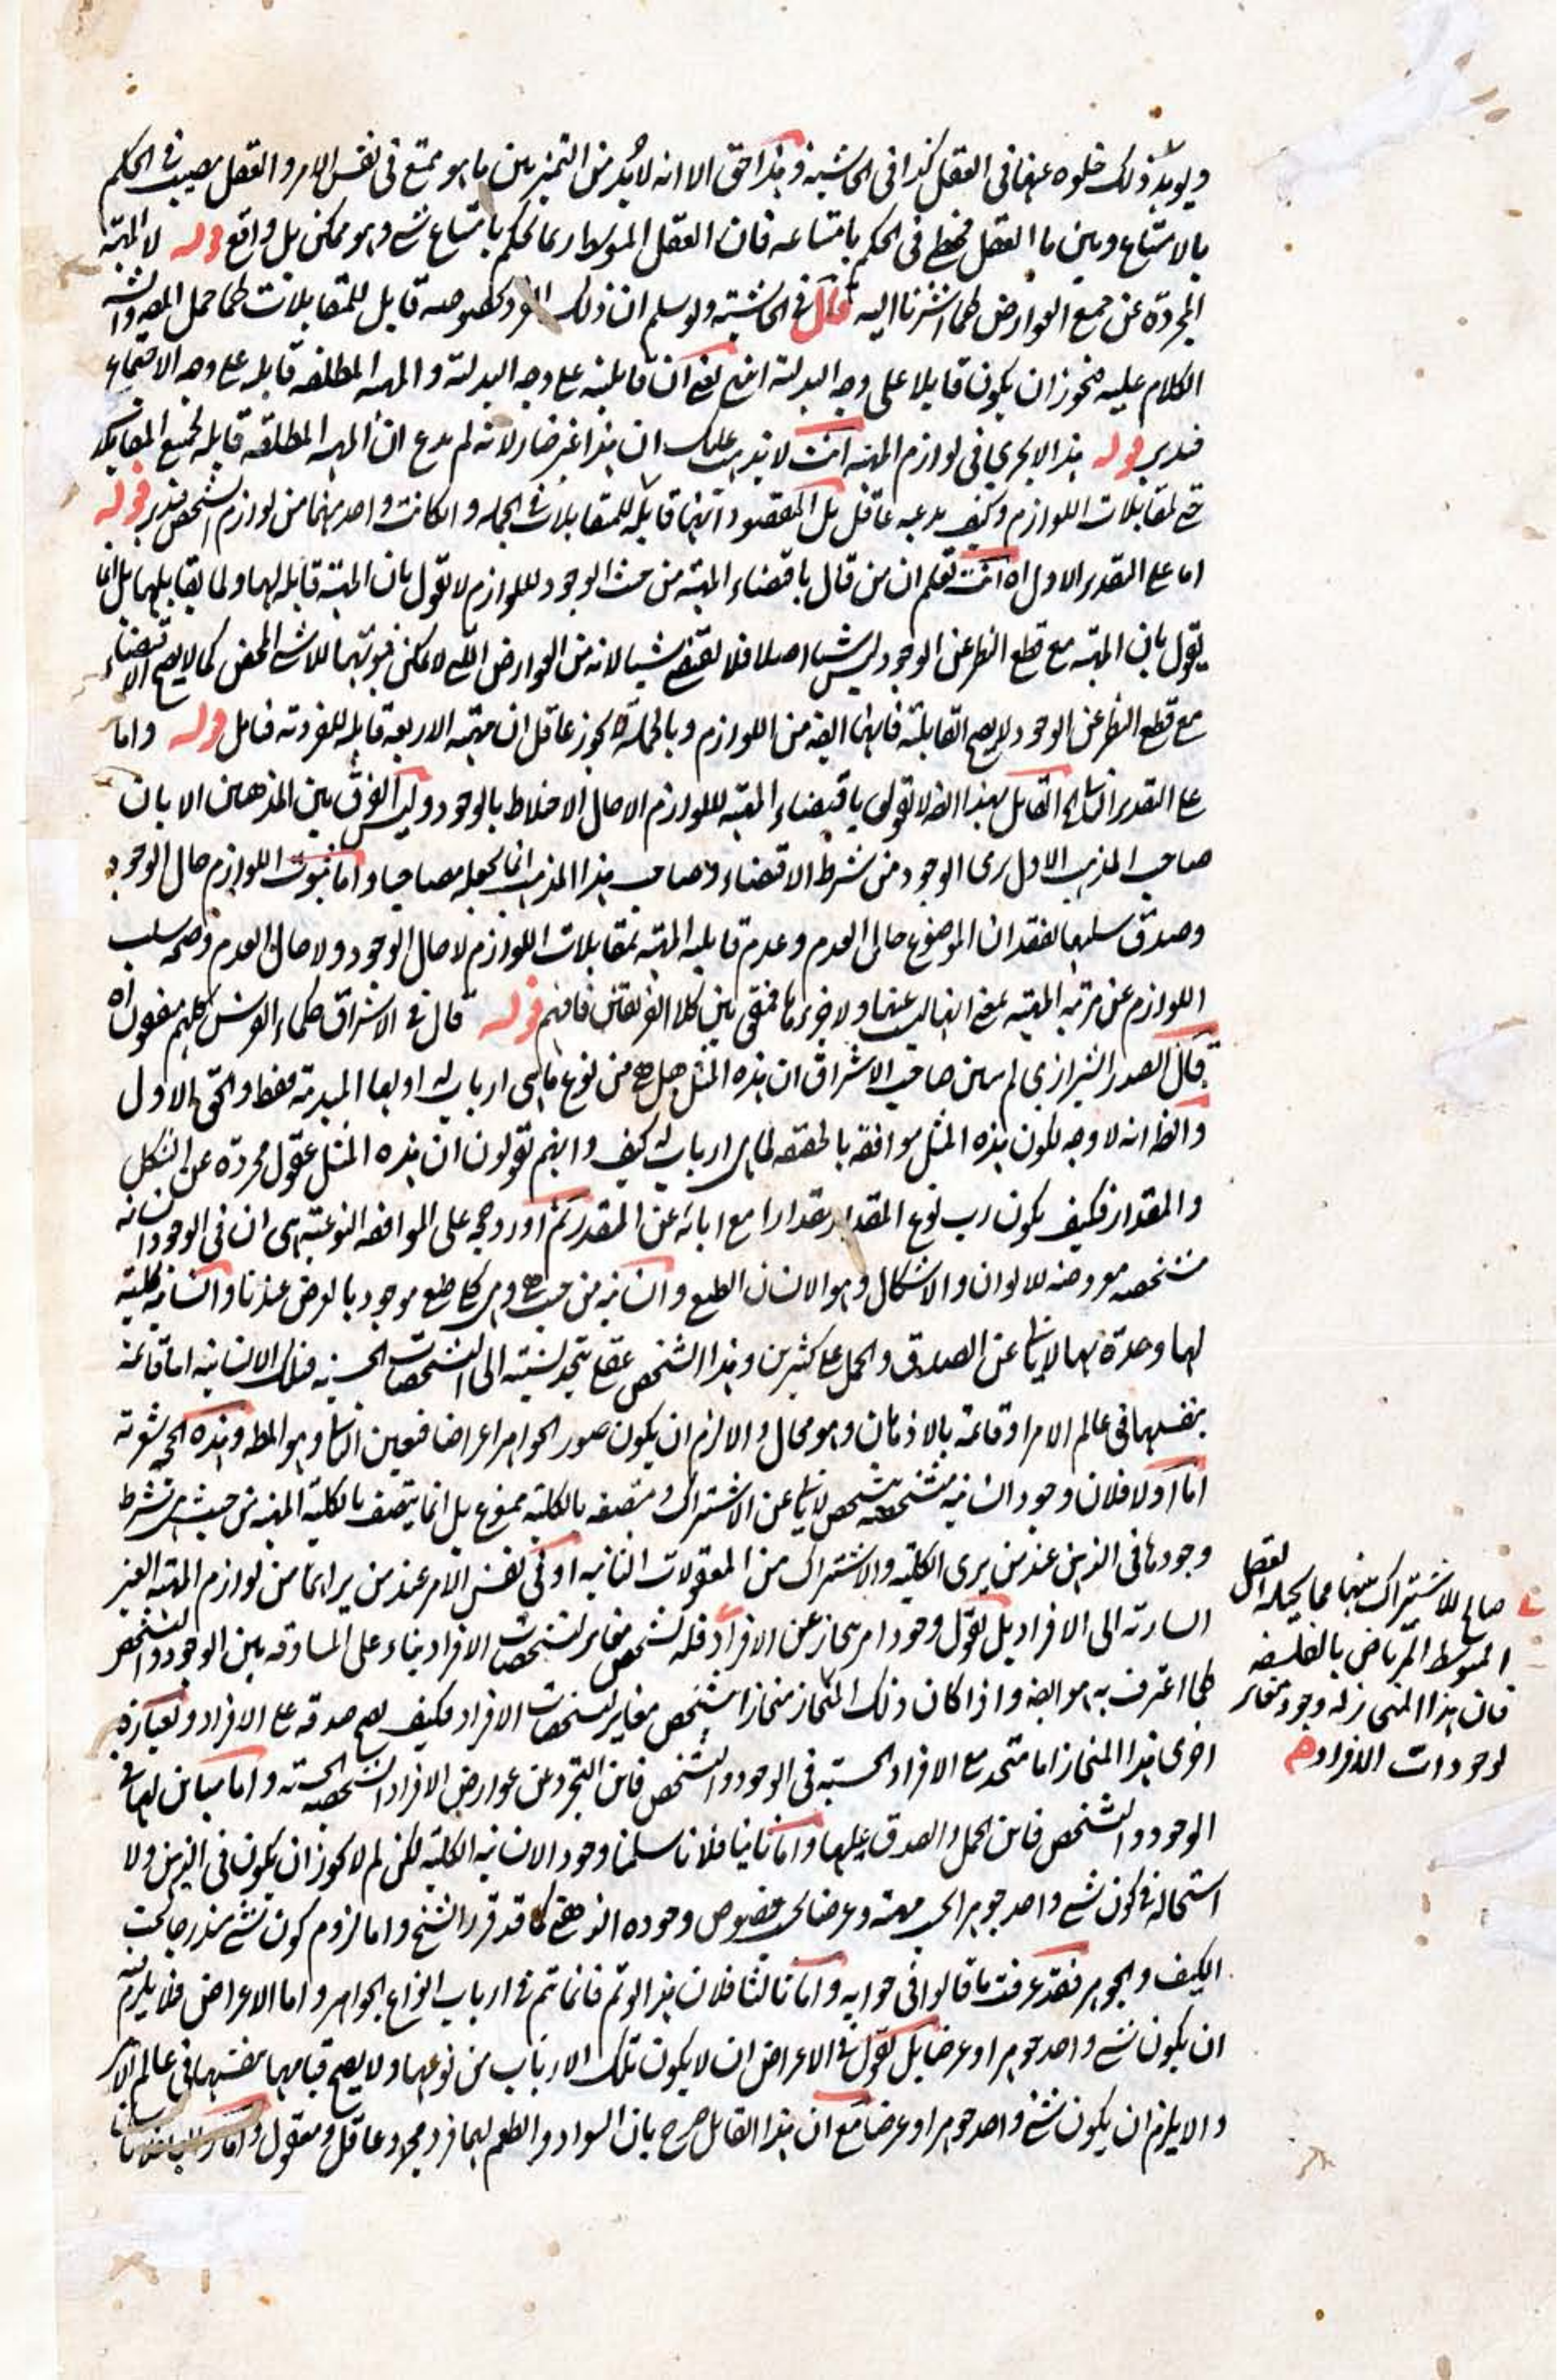 ويؤيد ذلك خلوه عنها في العقل كذا في الحاشية وهذا حق الا انه لا بُد من التميز بين ما هو ممتنع في نفس الامر والعقل مصيب في الحكم
بالامتناع وبين ما العقل مخطئ في الحكم بامتناعه فان العقل المتوسط ربما يحكم بامتناع شے وهو ممكن بل واقع قوله لا المهية
المجردة عن جميع العوارض كما اشرنا اليه قال في الحاشية ولو سلم ان ذلك الفرد بخصوصه قابل للمتقابلات كما حمل المص
الكلام عليه فيجوز ان يكون قابلا على وجه البدلية انتهى يعني ان قابليته على وجه البدلية والمهية المطلقة قابلة على وجه الاجتماع
فتدبر قوله هذا لا يجري في لوازم المهية انت لا يذهب عليك ان هذا غير ضار لانه لم يدع ان المهية المطلقة قابلة لجميع المتقابلات
حتى لمقابلات اللوازم وكيف يدعيه عاقل بل المقصود انها قابلة للمتقابلات في الجملة وان كانت واحد منها من لوازم الشخص فتدبر قوله
اما على التقدير الاول اه انت تعلم ان من قال باقتضاء المهية من حيث الوجود للوازم لا يقول بان المهية قابلة لها ولما يقابلها بل انما
يقول بان المهية مع قطع النظر عن الوجود ليس شيئا اصلا فلا يقتضي شيئا لانه من العوارض التي لا يمكن ثبوتها للاشے المحض كما لا يصح الاقتضاء
مع قطع النظر عن الوجود لا يصح القابلية فانها ايضا من اللوازم وبالجملة لا يجوز عاقل ان مهية الاربعة قابلة للفردية فتامل قوله واما
على التقدير الثاني القائل بهذا ايضا لا يقول باقتضاء المهية للوازم الا حال الاختلاط بالوجود وليس الفرق بين المذهبين الا بان
صاحب المذهب الاول يرى الوجود من شرط الاقتضاء وصاحب هذا المذهب انما يجعله مصاحبا واما ثبوت اللوازم حال الوجود
وصدق سلبها لفقدان الموضوع حال العدم وعدم قابلية المهية لمقابلات اللوازم لا حال الوجود ولا حال العدم وصحة سلب
اللوازم عن مرتبة المهية بمعنى انها ليست عينها ولا جزءها فمتفق بين كلا الفريقين فافهم قوله قال في الاشراق حكماء الفرس كلهم متفقون اه
قال الصدر الشيرازي لم يبين صاحب الاشراق ان هذه المثل هل هي من نوع ما هي ارباب له او لها المبدئية فقط والحق الاول
والظ انه لا وجه لكون هذه المثل موافقة بالحقيقة لما هي ارباب له كيف وانهم يقولون ان هذه المثل عقول مجردة عن الشكل
والمقدار فكيف يكون رب نوع المقدار مقدارا مع ابائه عن المقدر ثم اورد حجة على الموافقة النوعية هي ان في الوجود انسانية
متشخصة معروضة للالوان والاشكال وهو الانسان الطبع وانسانية من حيث هي وهي كلي طبعي موجود بالعرض عندنا وانسانية كلية
لها وحدة بها لا يأبى عن الصدق والحمل على كثيرين وهذا الشخص عقلي يتحد نسبته الى الشخصات الحسية فتلك الانسانية اما قائمة
بنفسها في عالم الامر او قائمة بالاذهان وهو محال والا لزم ان يكون صور الجواهر اعراضا فتعين الثاني وهو المط وهذه الحجة
اما اولا فلان وجود انسانية متشخصة بتشخص لا يأبى عن الاشتراك ومتصفة بالكلية ممنوع بل انما يتصف بالكلية المهية من حيث هي بشرط
وجودها في الذهن عند من يرى الكلية والاشتراك من المعقولات الثانية او في نفس الامر عند من يراهما من لوازم المهية الغير
السارية الى الافراد بل نقول وجود امر منحاز عن الافراد فله تشخص مغاير لتشخصات الافراد بناء على المساوقة بين الوجود والتشخص
كما اعترف به هو ايضا واذا كان ذلك المنحاز منحازا بتشخص مغاير لتشخصات الافراد فكيف يصح صدقه على الافراد وبعبارة
اخرى هذا المنحاز اما متحد مع الافراد الحسية في الوجود والتشخص فاين التجرد عن عوارض الافراد الشخصية الحسية واما مباين لها في
الوجود والتشخص فاين الحمل والصدق عليها واما ثانيا فلانا سلمنا وجود الانسانية الكلية لكن لم لا يجوز ان يكون في الذهن ولا
استحالة في كون شے واحد جوهرا بحسب مهيته وعرضا بحسب خصوص وجوده الذهني كما قد قرر الشيخ واما لزوم كون شے مندرجا تحت
الكيف والجوهر فقد عرفت ما قالوا في جوابه واما ثالثا فلان هذا لو تم فانما تم في ارباب انواع الجواهر واما الاعراض فلا يلزم
ان يكون شے واحد جوهرا وعرضا بل نقول في الاعراض ان لا يكون تلك الارباب من نوعها ولا يصح قيامها بنفسها في عالم الامر
والا يلزم ان يكون شے واحد جوهرا وعرضا مع ان هذا القائل صرح بان السواد والطعم لهما فرد مجرد عاقل ومعقول
صالح للاشتراك بينها مما يحيله العقل
المتوسط المرتاض بالفلسفة
فان هذا المنحاز له وجود مغاير
لوجودات الافراد